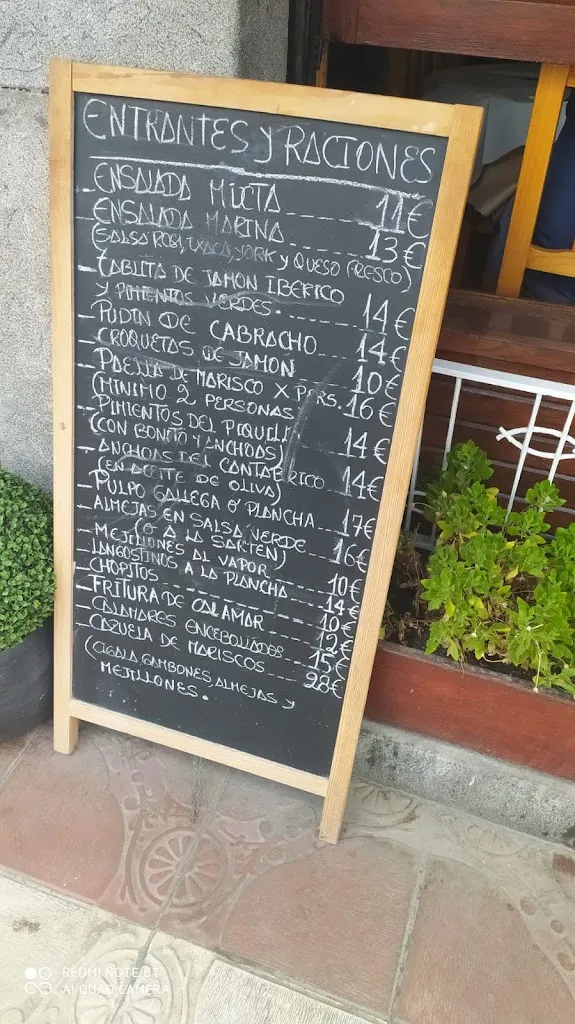 ENTRANTES Y RACIONES
ENSALADA MIXTA 11€
ENSALADA MARINA 13€
(SALSA ROSA, TXACA, YORK Y QUESO FRESCO)
TABLITA DE JAMON IBERICO
Y PIMIENTOS VERDES. 14€
PUDIN DE CABRACHO 14€
CROQUETAS DE JAMON 10€
PAELLA DE MARISCO X PERS. 16€
(MINIMO 2 PERSONAS
PIMIENTOS DEL PIQUILLO
(CON BONITO Y ANCHOAS) 14€
ANCHOAS DEL CANTABRICO
(EN ACEITE DE OLIVA) 14€
PULPO GALLEGA O' PLANCHA 17€
ALMEJAS EN SALSA VERDE
(O A LA SARTEN) 16€
MEJILLONES AL VAPOR 10€
LANGOSTINOS A LA PLANCHA 14€
CHOPITOS 10€
FRITURA DE CALAMAR 12€
CALAMARES ENCEBOLLADOS 15€
CAZUELA DE MARISCOS 28€
(CIGALA GAMBONES, ALMEJAS Y
MEJILLONES.
REDMI NOTE 8T
AI QUAD CAMERA